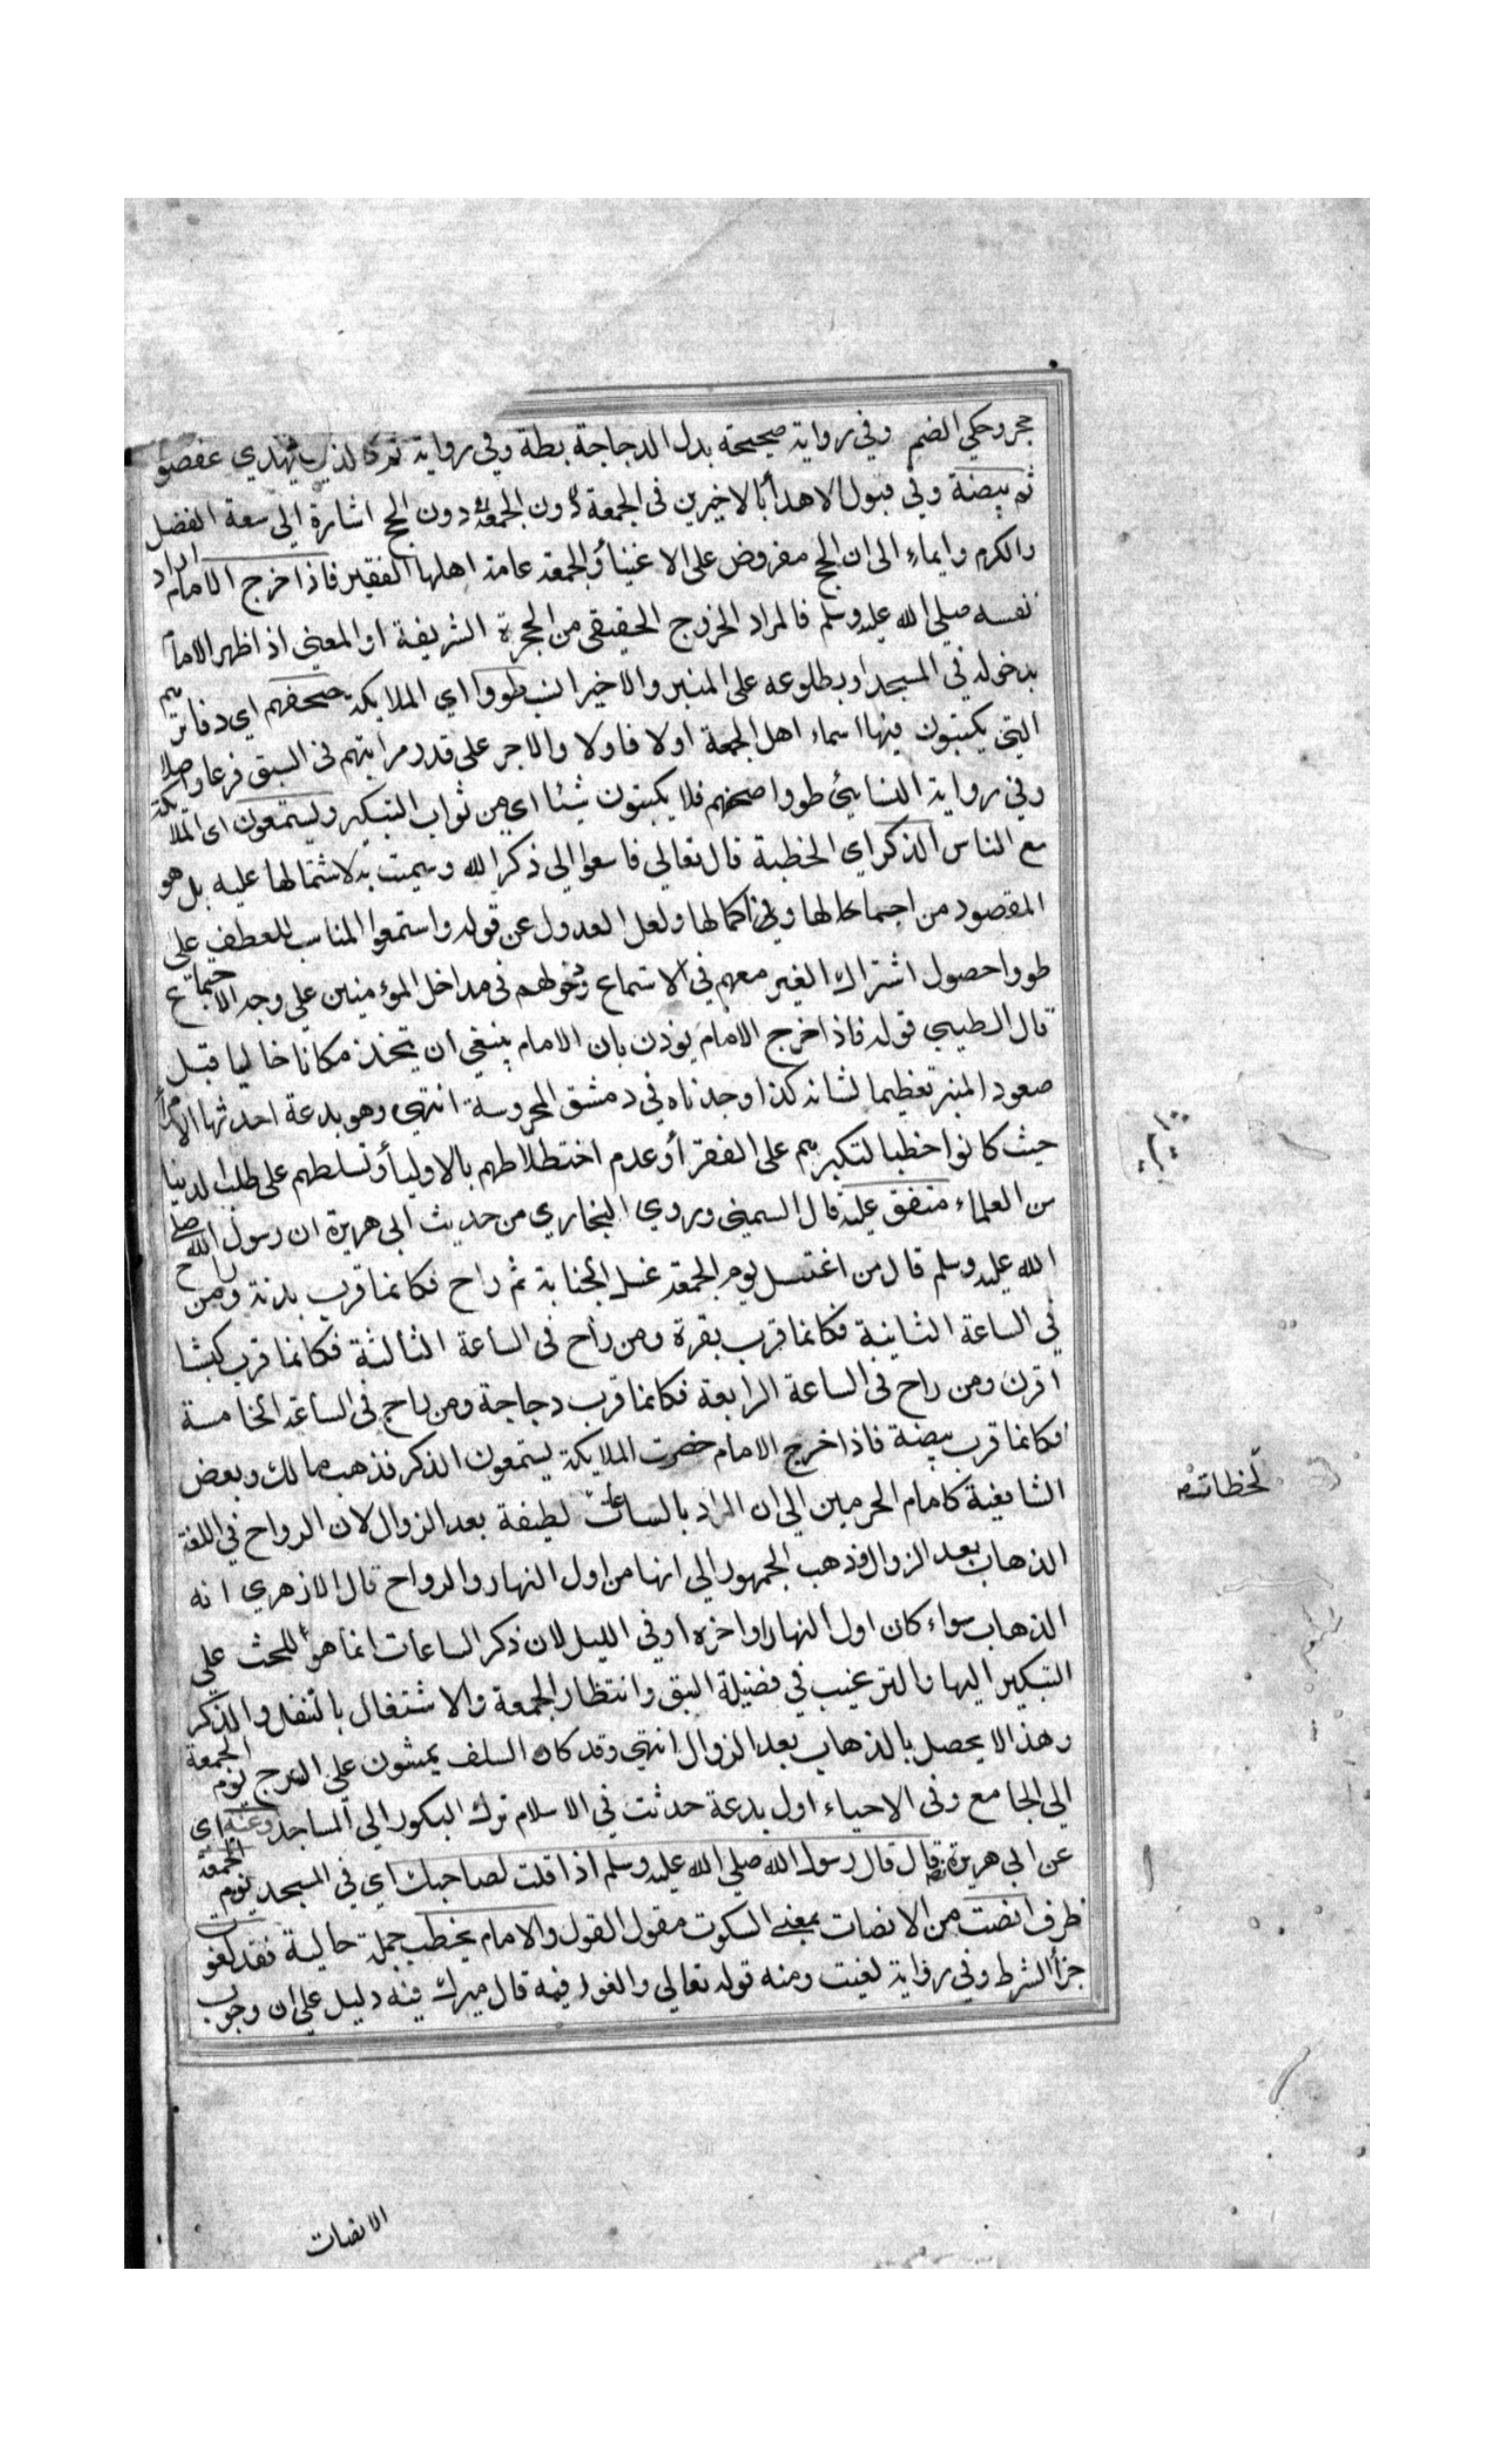 حجر وحكي الضم وفي رواية صحيحة بدل الدجاجة بطة وفي رواية ثم كالذي يهدي عصفورا
ثم بيضة وفي قبول الاهداء بالاخيرين في الجمعة دون الحج اشارة الي سعة الفضل
والكرم وايماء الى ان الحج مفروض على الاغنياء والجمعة عامة اهلها الفقير فاذا خرج الامام اراد
نفسه صلي الله عليه وسلم فالمراد الخروج الحقيقي من الحجرة الشريفة او المعني اذا ظهر الامام
بدخوله في المسجد او بطلوعه على المنبر والاخير انسب طووا اي الملايكة صحفهم اي دفاترهم
التي يكتبون فيها اسماء اهل الجمعة اولا فاولا والاجر على قدر مراتبهم في السبق فرعا واصلا
وفي رواية النسايئ طووا صحفهم فلا يكتبون شيئا اي من ثواب التبكير ويستمعون اى الملايكة
مع الناس الذكر اي الخطبة قال تعالي فاسعوا الي ذكر الله وسميت به لاشتمالها عليه بل هو
المقصود من اجماعها ولعل العدول عن قوله واستمعوا المناسب للعطف على
طووا حصول اشتراك الغير معهم في الاستماع ودخولهم في مداخل المؤمنين على وجه الاجتماع
قال الطيبي قوله فاذا خرج الامام يوذن بان الامام ينبغي ان يتخذ مكانا خاليا قبل
صعود المنبر تعظيما لشانه كذا وجدناه في دمشق المحروسة انتهي وهو بدعة احدثها الامراء
حيث كانوا خطبا لتكبرهم على الفقراء وعدم اختطلاطهم بالاولياء وتسلطهم على طلب الدنيا
من العلماء متفق عليه قال السمني وروي البخاري من حديث ابي هريرة ان رسول الله صلى
الله عليه وسلم قال من اغتسل يوم الجمعة غسل الجنابة ثم راح فكانما قرب بدنة ومن راح
في الساعة الثانية فكانما قرب بقرة ومن راح في الساعة الثالثة فكانما قرب كبشا
اقرن ومن راح في الساعة الرابعة فكانما قرب دجاجة ومن راح في الساعة الخامسة
فكانما قرب بيضة فاذا خرج الامام حضرت الملايكة يستمعون الذكر فذهب مالك وبعض
الشافعية كامام الحرمين الي ان المراد بالساعات لطيفة بعد الزوال لان الرواح في اللغة
الذهاب بعد الزوال وذهب الجمهور الي انها من اول النهار والرواح قال الازهري انه
الذهاب سواء كان اول النهار او اخره او في الليل لان ذكر الساعات انما هو للحث على
التبكير اليها والترغيب في فضيلة السبق وانتظار الجمعة والاشتغال بالتنفل والذكر
وهذا لا يحصل بالذهاب بعد الزوال انتهي وقد كان السلف يمشون على السرج يوم الجمعة
الي الجامع وفي الاحياء اول بدعة حدثت في الاسلام ترك البكور الي المساجد وعنه اى
عن ابي هريرة قال قال رسول الله صلي الله عليه وسلم اذا قلت لصاحبك اي في المسجد يوم الجمعة
ظرف انصت من الانصات بمعنى السكوت مقول القول والامام يخطب جملة حالية فقد لغوت
جزأ الشرط وفي رواية لغيت ومنه قوله تعالي والغوا فيه قال ميرك فيه دليل على ان وجوب
لحظات
الانصات